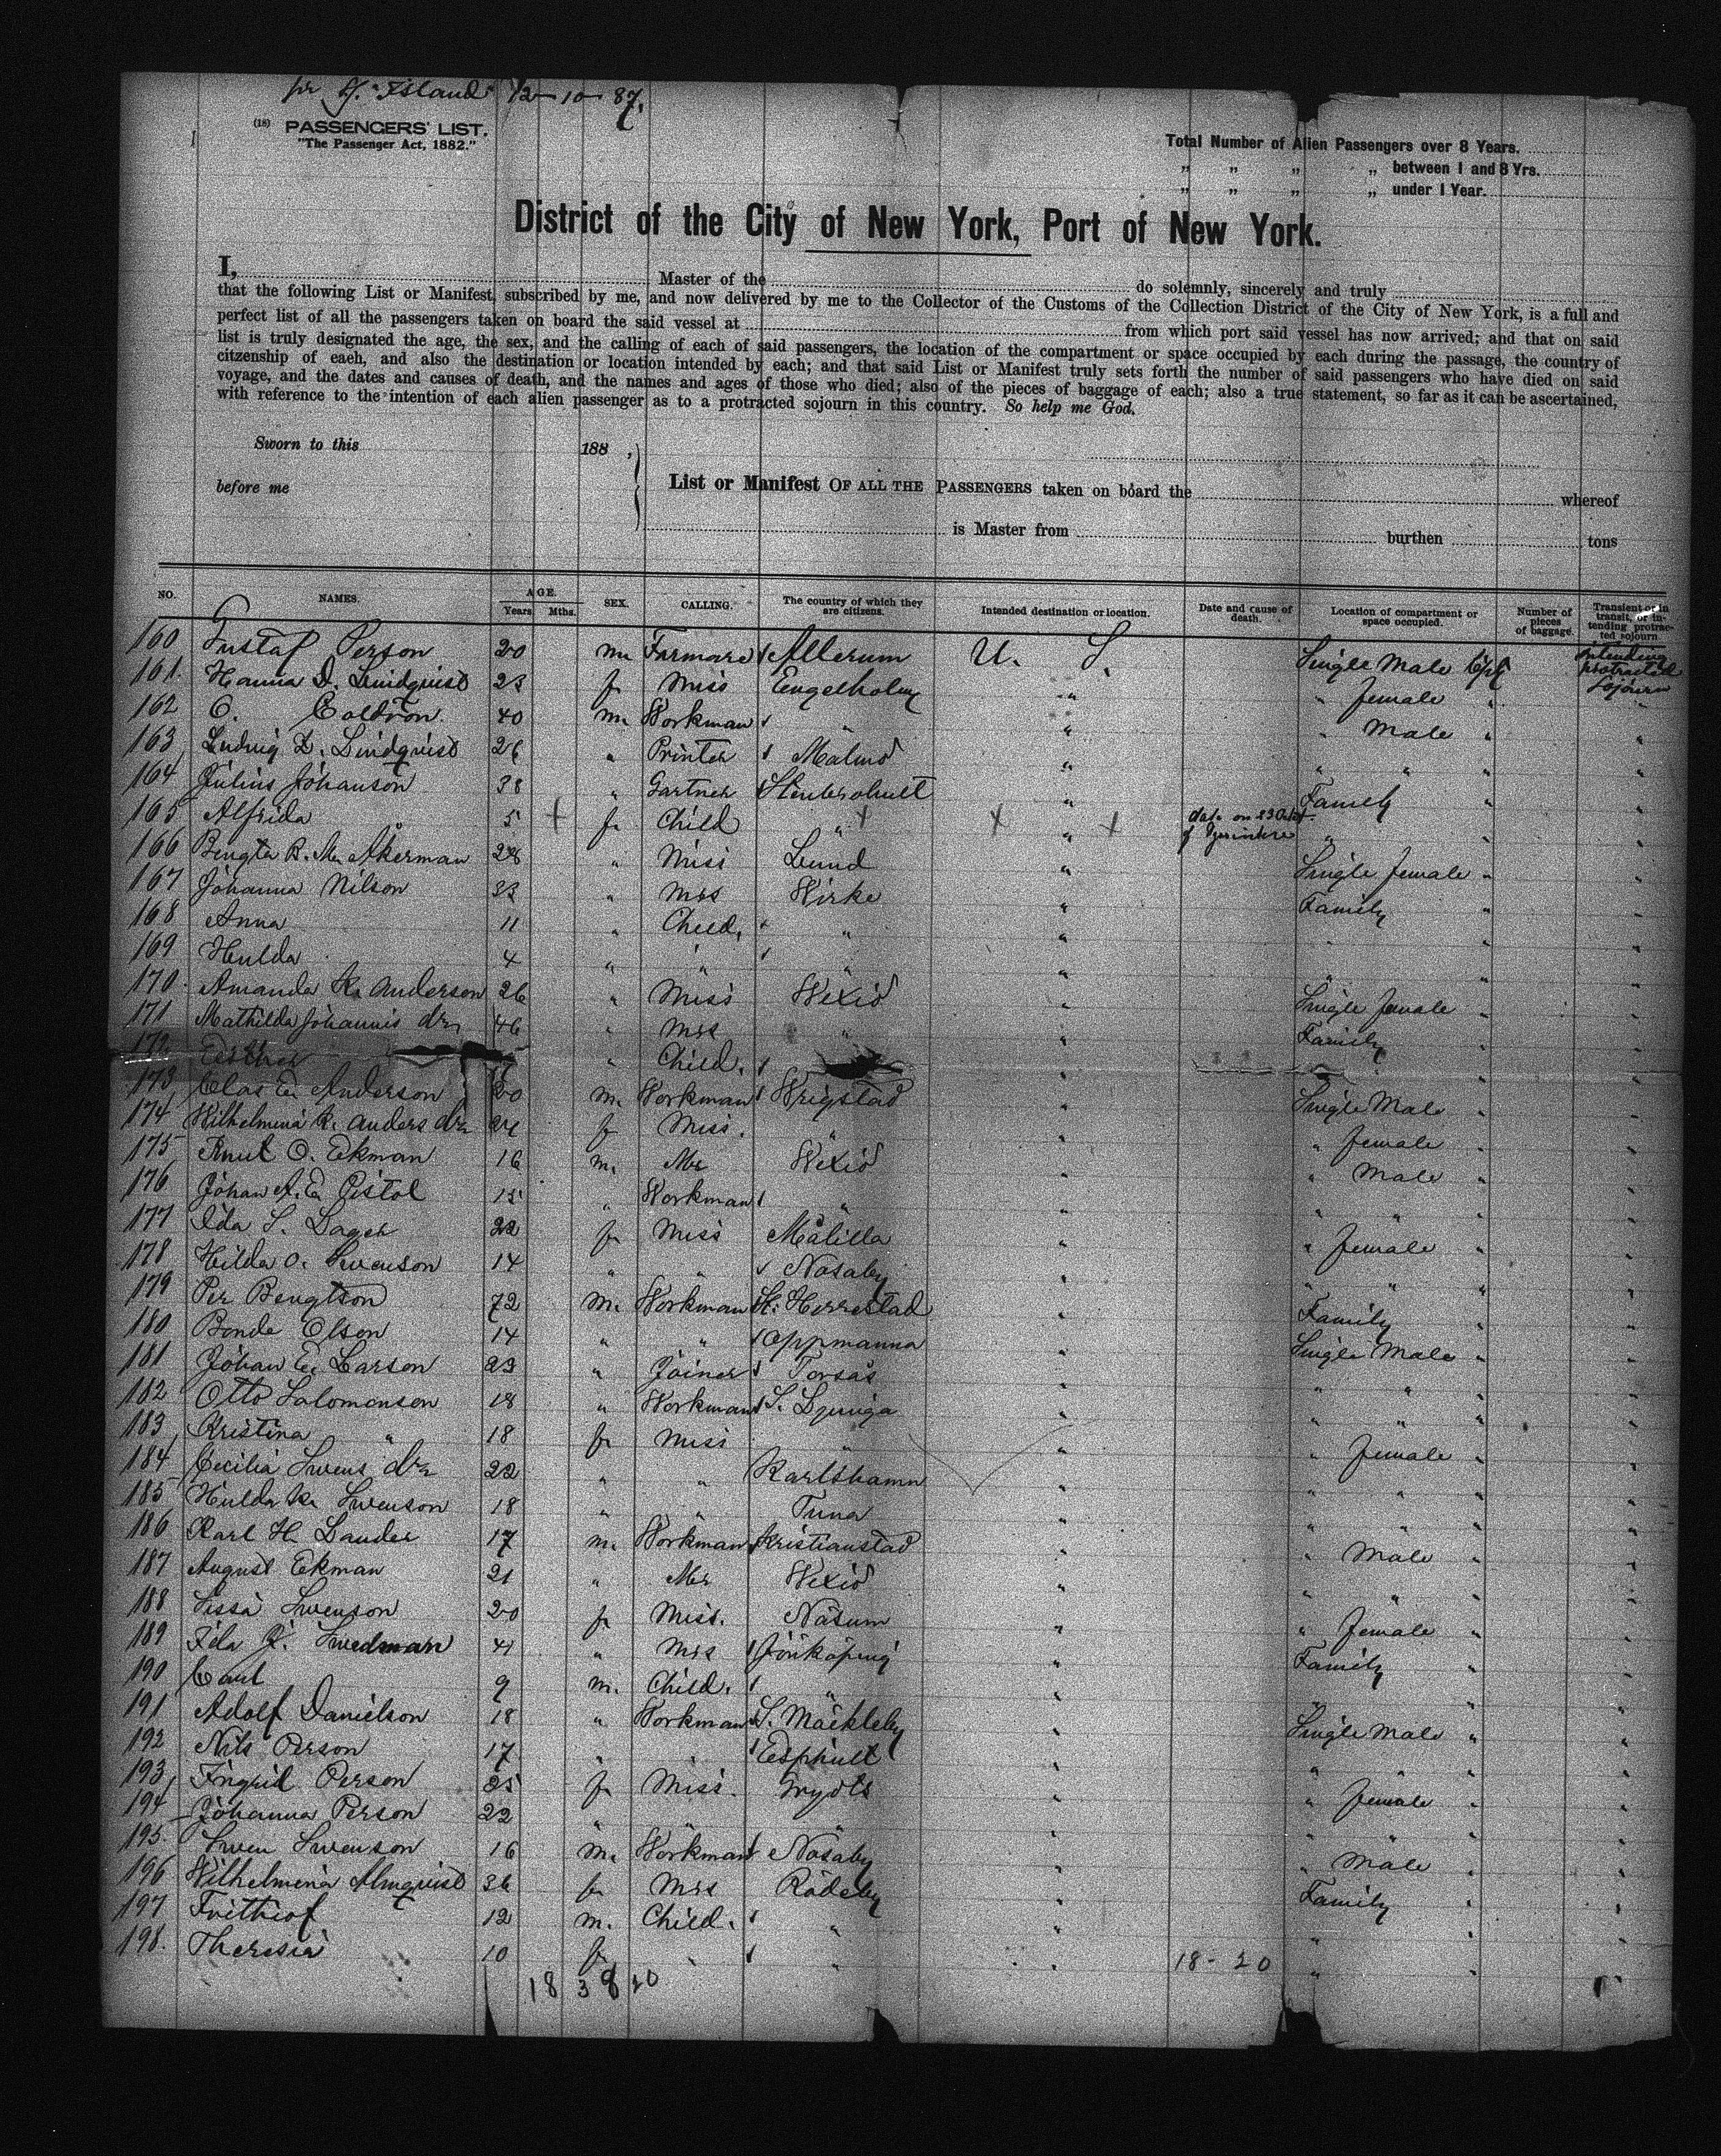 pr S. "Island" 12-10-87.
(18) PASSENGERS' LIST.
"The Passenger Act, 1882."
Total Number of Alien Passengers over 8 Years.
„ „ „ „ between 1 and 8 Yrs.
„ „ „ „ under 1 Year.
District of the City of New York, Port of New York.
I, Master of the do solemnly, sincerely and truly
that the following List or Manifest, subscribed by me, and now delivered by me to the Collector of the Customs of the Collection District of the City of New York, is a full and
perfect list of all the passengers taken on board the said vessel at from which port said vessel has now arrived; and that on said
list is truly designated the age, the sex, and the calling of each of said passengers, the location of the compartment or space occupied by each during the passage, the country of
citzenship of eaeh, and also the destination or location intended by each; and that said List or Manifest truly sets forth the number of said passengers who have died on said
voyage, and the dates and causes of death, and the names and ages of those who died; also of the pieces of baggage of each; also a true statement, so far as it can be ascertained,
with reference to the intention of each alien passenger as to a protracted sojourn in this country. So help me God.
Sworn to this 188 ,
before me
List or Manifest OF ALL THE PASSENGERS taken on board the whereof
is Master from burthen tons
NO. NAMES. AGE. Years Mths. SEX. CALLING. The country of which they are citizens. Intended destination or location. Date and cause of death. Location of compartment or space occupied. Number of pieces of baggage. Transient or in transit, or intending protracted sojourn
160 Gustaf Person 20 m Farmare Allerum U. S. Single Male Intending protracted sojourn
161. Hanna D. Lindquist 23 f Miss Engelholm " " female " "
162 O. 40 m. Workman " " " Male " "
163 Ludvig L. Lindquist 26 " Printer Malmö " " " " "
164 Julius Johanson 38 " Gartner Stenbrohult " Family " "
165 Alfrida 5 f Child " " " " "
166 Bengta B. M. Åkerman 28 " Miss Lund " Single female " "
167 Johanna Nilson 33 " Mrs Wirke " Family " "
168 Anna 11 " Child. " " " "
169 Hulda 4 " " " " " " "
170. Amanda K. Anderson 26 " Miss Wexiö " Single female " "
171 Mathilda Johannis dr 46 " Mrs " " Family " "
172 Esther " Child. " " "
173 Clas E. Anderson 20 m. Workman Wrigstad " Single Male " "
174 Wilhelmina K. Anders dr 24 f Miss. " " " female " "
175 Knut O. Ekman 16 m. Mr Wexiö " " Male " "
176 Johan A. E. Pistol 15 " Workman " " " " " "
177 Ida S. Lager 22 f Miss Målilla " " female " "
178 Hilda O. Swenson 14 " " Nosaby " " " " "
179 Per Bengtson 72 m. Workman St. Herrestad " Family " "
180 Bonde Olson 14 " " Oppmanna " Single Male " "
181 Johan E. Larson 23 " Joiner Torsås " " " " "
182 Otto Salomonson 18 " Workman S. Ljunga " " " " "
183 Kristina " 18 f Miss " " " female " "
184 Cecilia Swens dr 22 " " Karlshamn " " " " "
185 Hulda K. Swenson 18 " " Tuna " " " " "
186 Karl H. Lander 17 m. Workman Kristianstad " " Male " "
187 August Ekman 21 " Mr Wexiö " " " " "
188 Sissa Swenson 20 f Miss. Näsum " " female " "
189 Ida J. Swedman 41 " Mrs Jönköping " Family " "
190 Carl 9 m. Child. " " " " "
191 Adolf Danielson 18 " Workman S. Möckleby " Single Male " "
192 Nils Person 17 " " Esphult " " " " "
193 Ingrid Person 25 f Miss. Grydts " " female " "
194 Johanna Person 22 " " " " " " " "
195. Swen Swenson 16 m. Workman Nosaby " " Male " "
196 Wilhelmina Almquist 36 f Mrs Rödeby " Family " "
197 Frithiof 12 m. Child. " " " " "
198. Theresia 10 f " " " 18-20 " "
18 38 20